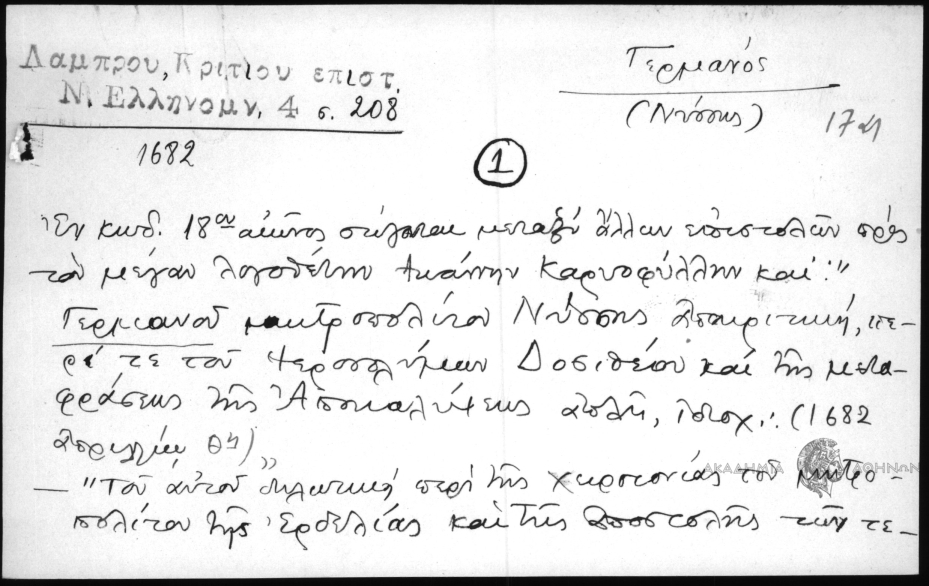 Λαμπρου, Κριτίου επιστ.
Ν. Ελληνομν. 4 σ. 208
1682
Γερμανός
(Νύσσης)
1
Ἐν κωδ. 18ου αἰῶνος σώζονται μεταξύ ἄλλων ἐπιστολῶν πρός
τόν μέγαν λογοθέτην Ἰωάννην Καρυοφύλλην καί: "
Γερμανοῦ μητροπολίτου Νύσσης ἀποκριτική, πε-
ρί τε τοῦ Ἱεροσολύμων Δοσιθέου καί τῆς μετα-
φράσεως τῆς Ἀποκαλύψεως (1682
Ἀπριλλίου θῃ)"
ΑΚΑΔΗΜΙΑ ΑΘΗΝΩΝ
— "Τοῦ αὐτοῦ δηλωτική περί τῆς χειροτονίας τοῦ μητρο-
πολίτου τῆς Ἐρδελίας καί τῆς ἀποστολῆς τῶν τε-